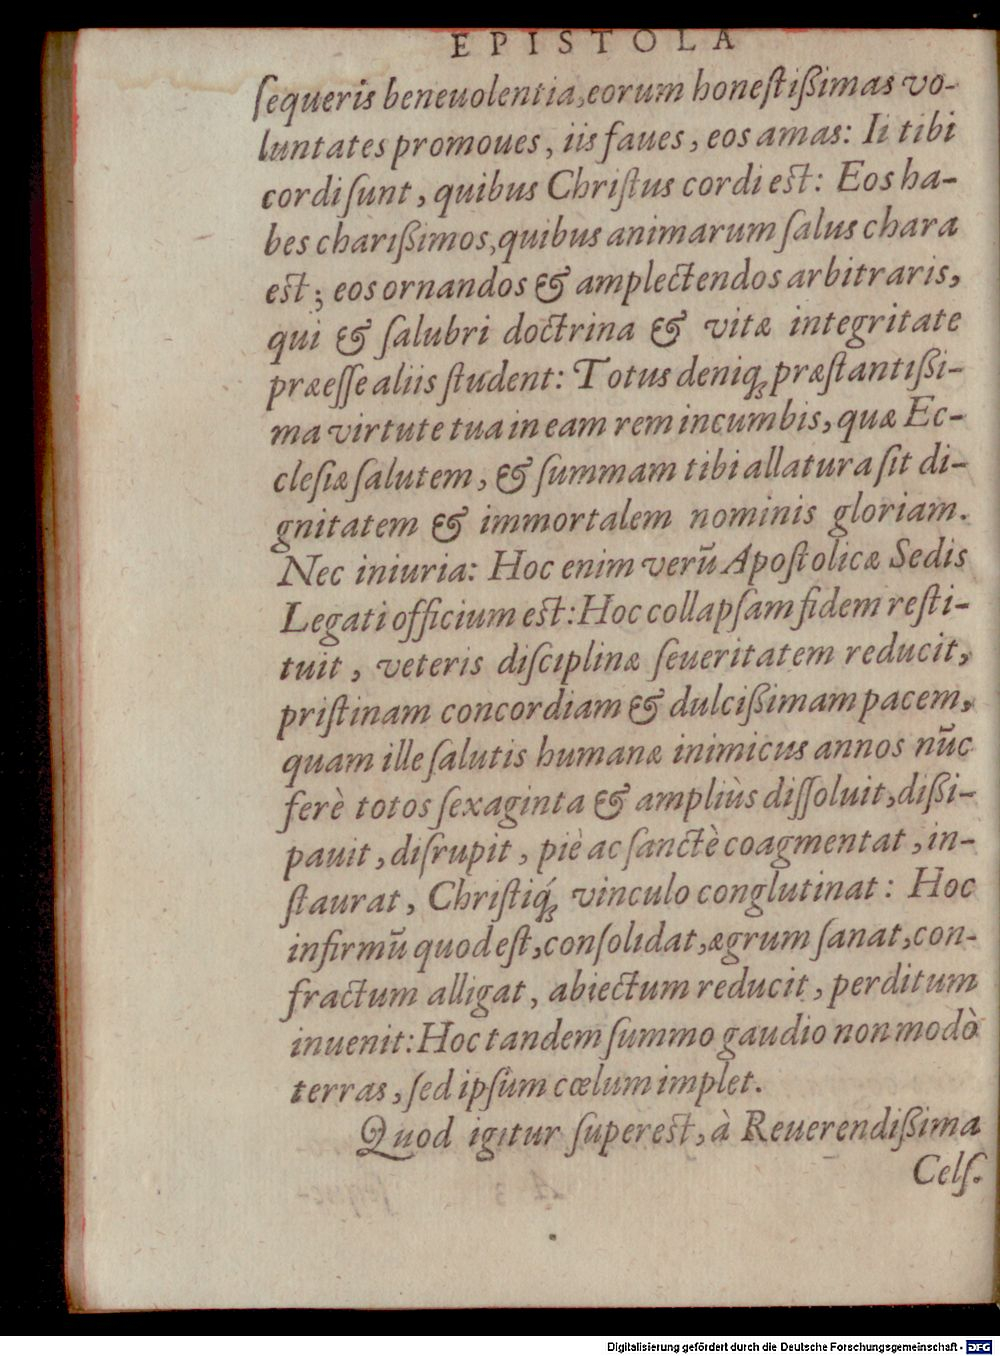 EPISTOLA
ſequeris beneuolentia, eorum honeſtißimas vo-
luntates promoues, iis faues, eos amas: Ii tibi
cordi ſunt, quibus Chriſtus cordi est: Eos ha-
bes charißimos, quibus animarum ſalus chara
est; eos ornandos & amplectendos arbitraris,
qui & ſalubri doctrina & vitæ integritate
præeſſe aliis ſtudent: Totus deniq; præſtantißi-
ma virtute tua in eam rem incumbis, quæ Ec-
cleſiæ ſalutem, & ſummam tibi allatura ſit di-
gnitatem & immortalem nominis gloriam.
Nec iniuria: Hoc enim verū Apoſtolicæ Sedis
Legati officium est: Hoc collapſam fidem reſti-
tuit, veteris diſciplinæ ſeueritatem reducit,
priſtinam concordiam & dulcißimam pacem,
quam ille ſalutis humanæ inimicus annos nūc
ferè totos ſexaginta & ampliùs diſſoluit, dißi-
pauit, diſrupit, piè ac ſanctè coagmentat, in-
ſtaurat, Chriſtiq́; vinculo conglutinat: Hoc
infirmū quod eſt, conſolidat, ægrum ſanat, con-
fractum alligat, abiectum reducit, perditum
inuenit: Hoc tandem ſummo gaudio non modò
terras, ſed ipſum cœlum implet.
Quod igitur ſuperest, à Reuerendißima
Celſ.
Digitalisierung gefördert durch die Deutsche Forschungsgemeinschaft - DFG